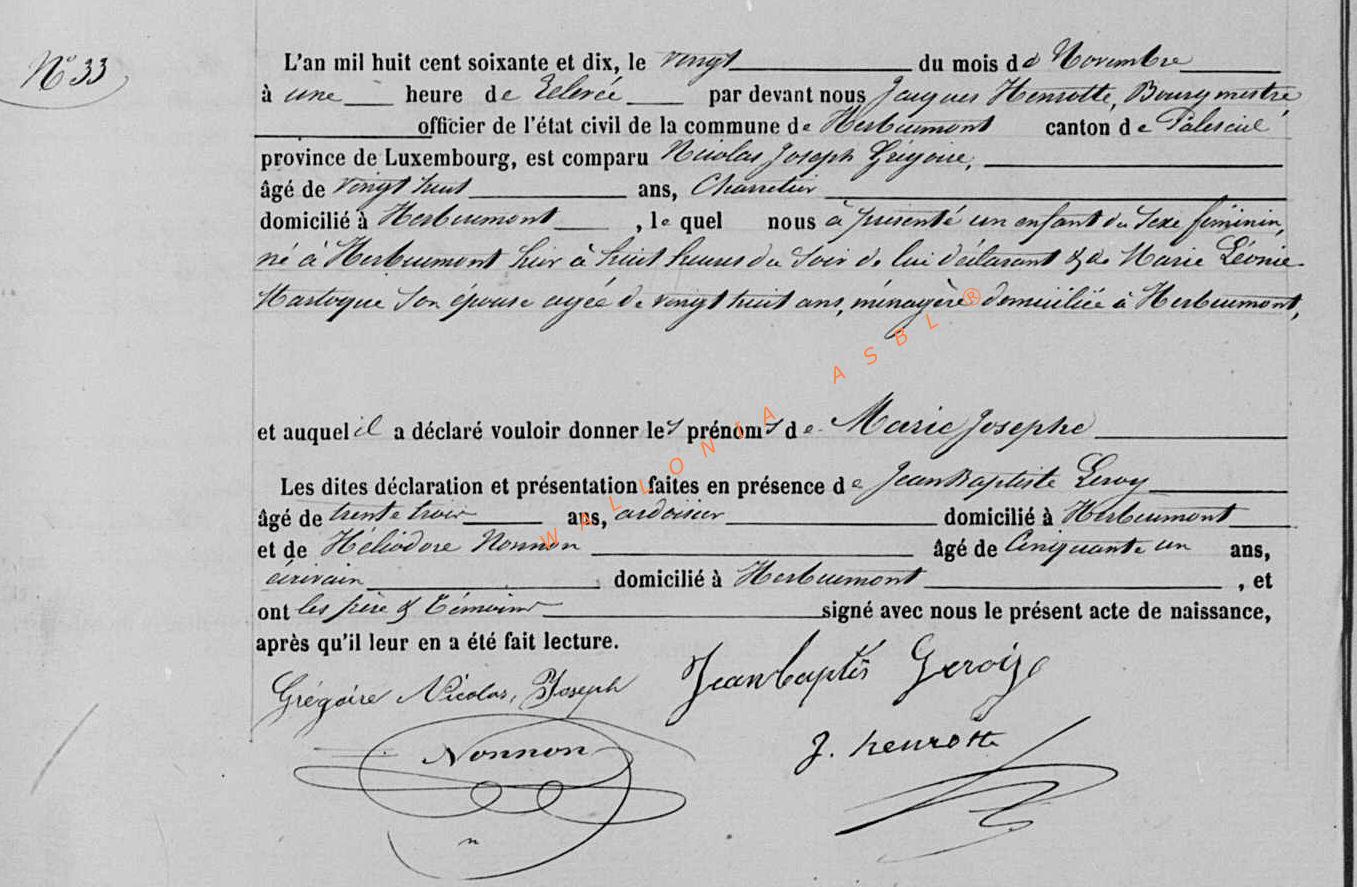 N° 33
L'an mil huit cent soixante et dix, le vingt du mois de Novembre
à une heure de Relevée par devant nous Jacques Henrotte, Bourgmestre,
officier de l'état civil de la commune de Herbeumont canton de Paliseul
province de Luxembourg, est comparu Nicolas Joseph Grégoire,
âgé de vingt huit ans, Charretier
domicilié à Herbeumont, le quel nous à présenté un enfant du Sexe féminin,
né à Herbeumont hier à huit heures du Soir de lui déclarant & de Marie Léonie
Son épouse agée de vingt huit ans, ménagère domiciliée à Herbeumont,
et auquel il a déclaré vouloir donner les prénoms de Marie Josephe
Les dites déclaration et présentation faites en présence de Jean Baptiste
âgé de trente trois ans, ardoisier domicilié à Herbeumont
et de Héliodore Nonnon âgé de Cinquante un ans,
écrivain domicilié à Herbeumont, et
ont les père & témoins signé avec nous le présent acte de naissance,
après qu'il leur en a été fait lecture.
Grégoire Nicolas, Joseph Jeanbaptis
Nonnon J. henrotte
WALLONIA ASBL ®